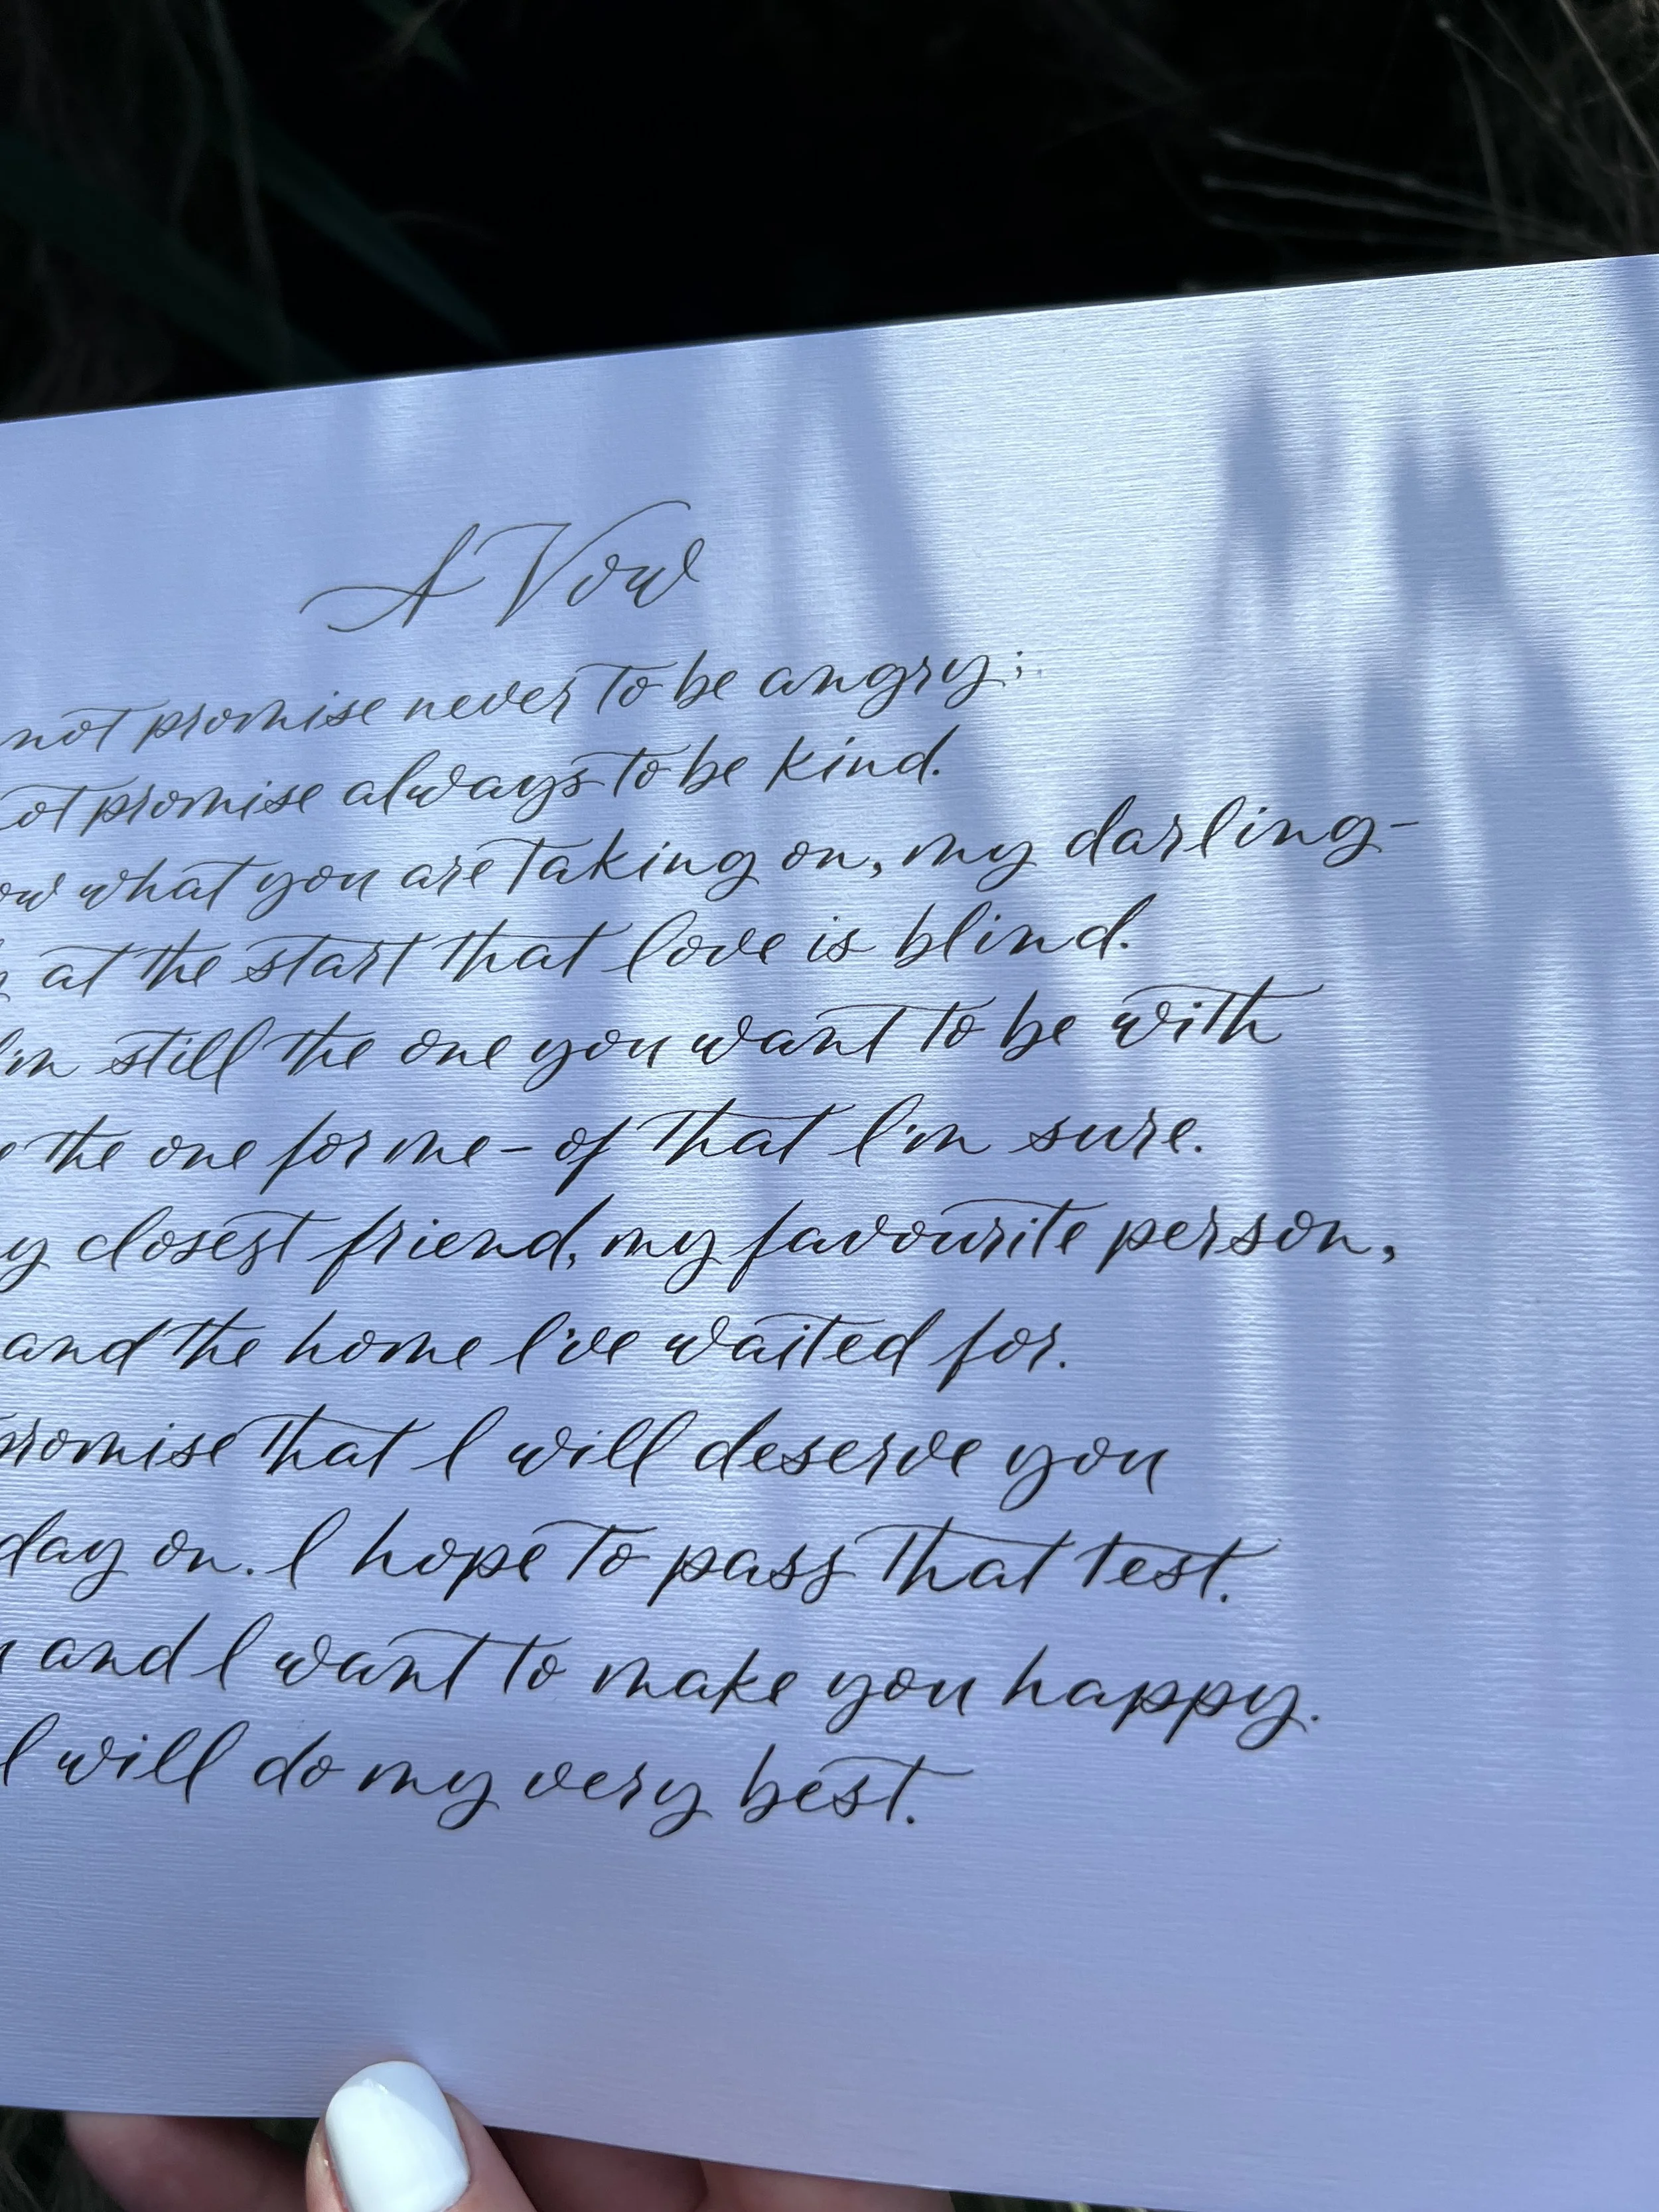 A Vow
not promise never to be angry;
ot promise always to be kind.
ow what you are taking on, my darling–
at the start that love is blind.
I'm still the one you want to be with
the one for me – of that I'm sure.
y closest friend, my favourite person,
and the home I've waited for.
romise that I will deserve you
day on. I hope to pass that test.
and I want to make you happy.
I will do my very best.